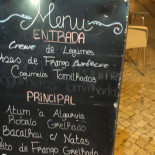 Menu
ENTRADA
Creme de Legumes
Asas de Frango Barbecue
Cogumelos Tomilhados
PRINCIPAL
Atum à Algarvia
Robalo Grelhado
Bacalhau c/ Natas
to de Frango Grelhado